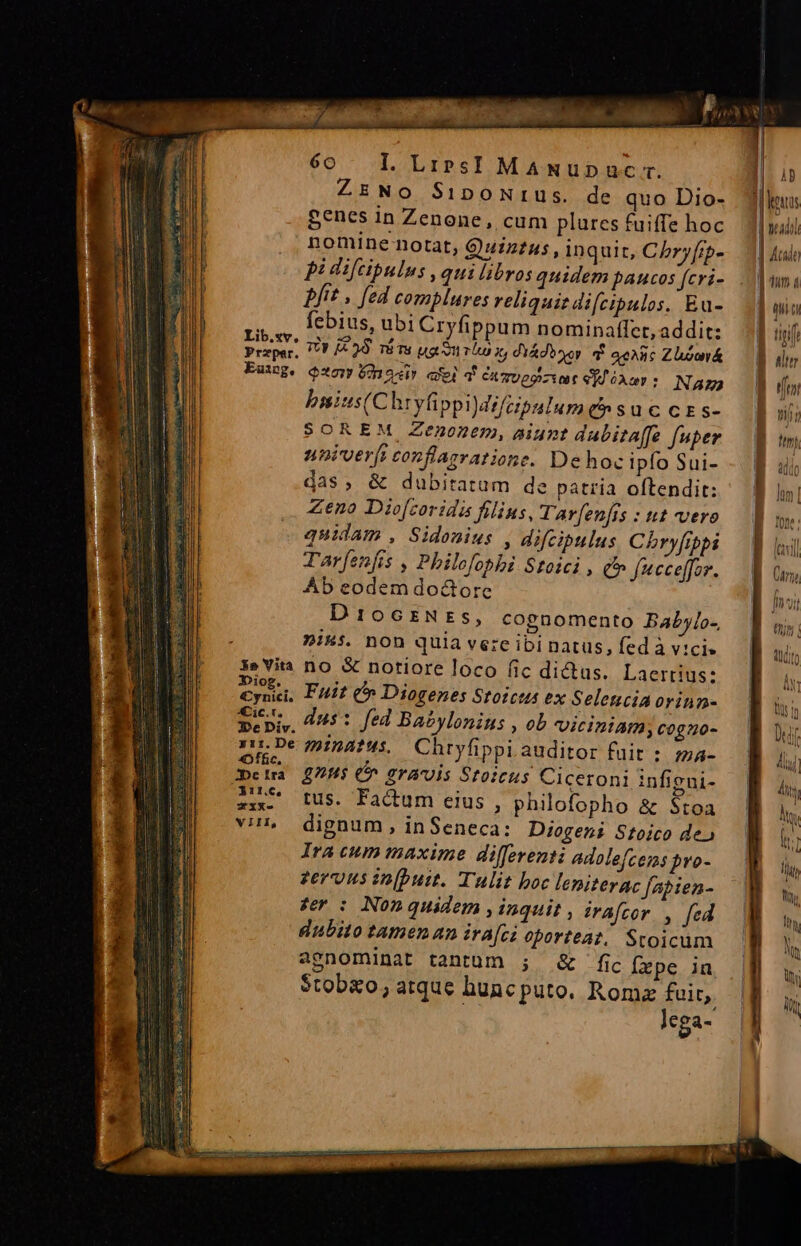 60 I. LIPSI MANUDUCT.
ZENO SIDONIUS. de quo Dio-
genes in Zenone, cum plures fuiſſe hoc
nomine notat, Quintus, inquit, Chryſip-
pi diſcipulus, qui libros quidem paucos ſcri-
pſit, ſed complures reliquit diſcipulos. Eu-
ſebius, ubi Cryſippum nominaſſet, addit:
Lib.xv.
Præpar.
Euang.
φασὶν
Nam
huius(Chryſippi)diſcipulum & SUCCES-
SOREM Zenonem, aiunt dubitaſſe ſuper
univerſi conflagratione. De hoc ipſo Sui-
das, & dubitatum de patria oſtendit:
Zeno Dioſcoridis filius, Tarſenſis : ut vero
quidam , Sidonius , diſcipulus Chryſippi
Tarſenſis , Philoſophi Stoici , & ſucceſſor.
Ab eodem doctore
DIOGENES, cognomento Babylo-
nius. non quia vere ibi natus, ſed à vici-
no & notiore loco ſic dictus. Laertius:
Fuit & Diogenes Stoicus ex Seleucia oriun-
dus : ſed Babylonius , ob viciniam, cogno-
minatus. Chryſippi auditor fuit : ma-
gnus & gravis Stoicus Ciceroni inſigni-
tus. Factum eius , philoſopho & Stoa
dignum, in Seneca: Diogeni Stoico de
Ira cum maxime diſſerenti adoleſcens pro-
tervus inſpuit. Tulit hoc leniter ac ſapien-
ter : Non quidem , inquit , iraſcor , ſed
dubito tamen an iraſci oporteat. Stoicum
agnominat tantum ; & ſic ſæpe in
Stobæo; atque hunc puto. Romæ fuit,
lega-
In Vita
Diog.
Cynici.
Cic.
De Div.
De
Offic.
De Ira
III.C.
VIII.